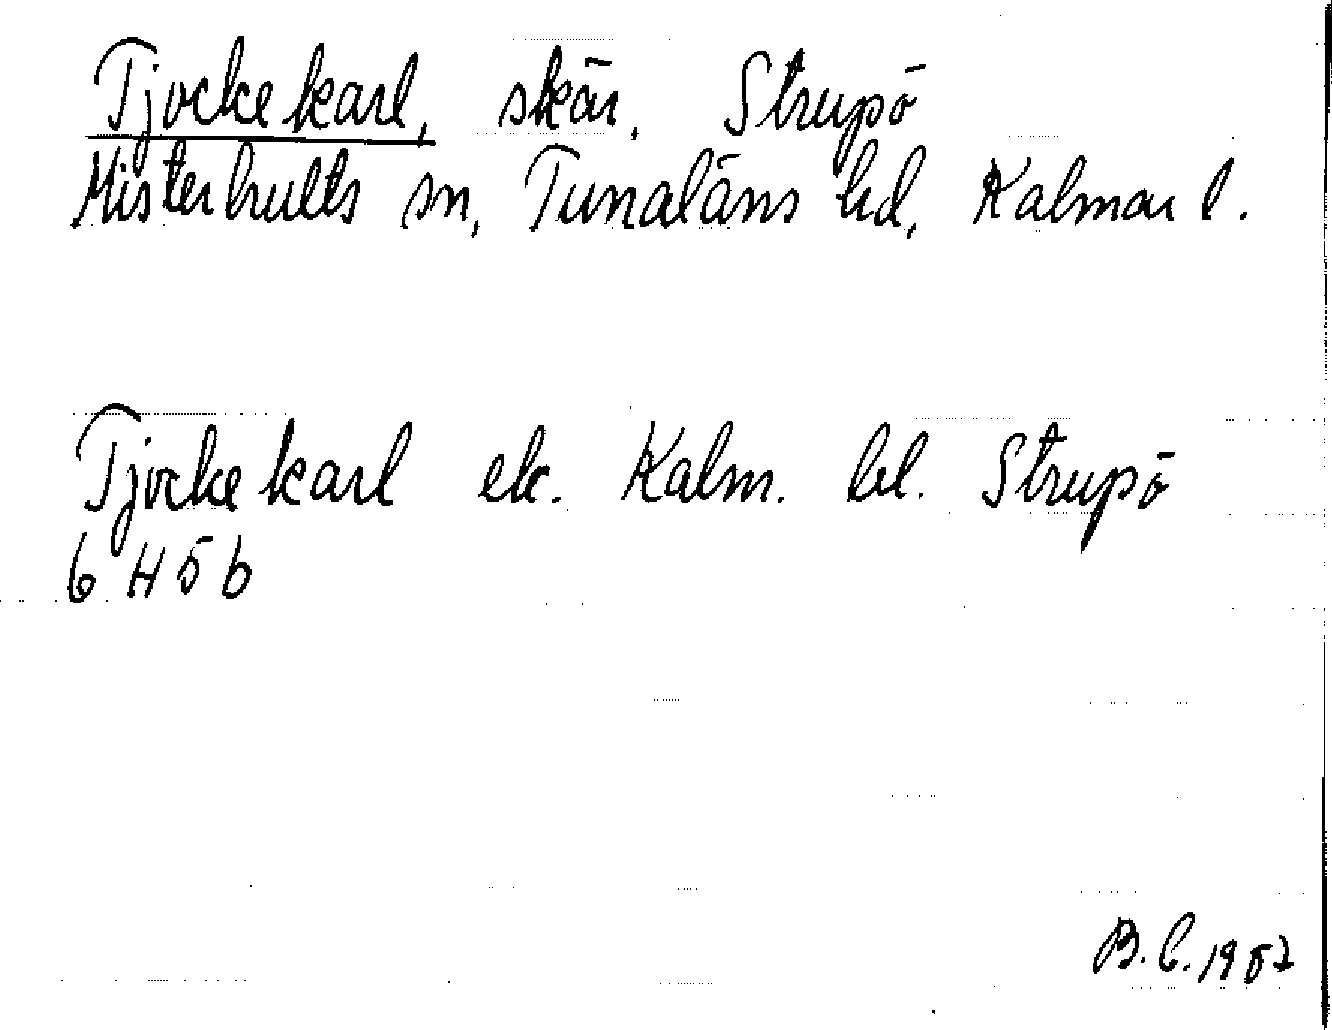 Tjockekarl, skär, Strupö
Misterhults sn, Tunaläns hd, Kalmar l.
Tjockekarl ek. Kalm. bl. Strupö
6 H 5 b
B.C. 1957